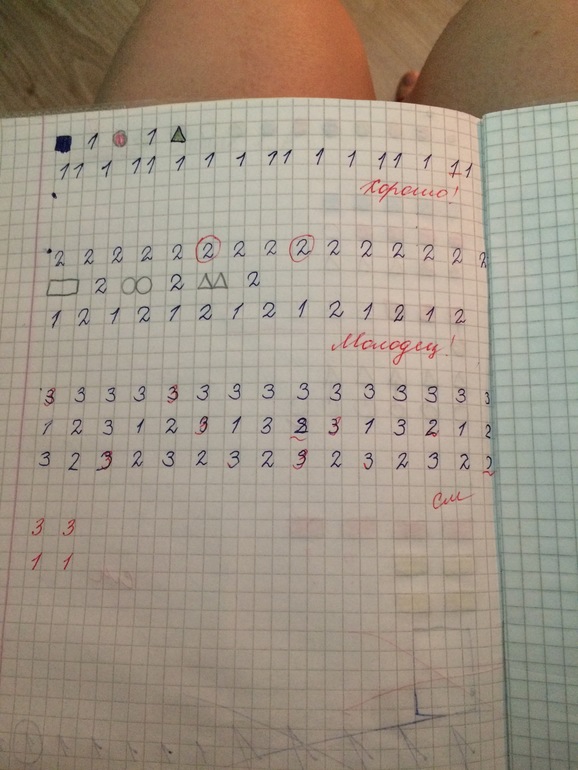 1 1
11 1 11 1 1 1 11 1 1 11 1 11
Хорошо!
2 2 2 2 2 2 2 2 2 2 2 2 2 2 2
2 2 2
1 2 1 2 1 2 1 2 1 2 1 2 1 2
Молодец!
3 3 3 3 3 3 3 3 3 3 3 3 3 3 3
1 2 3 1 2 3 1 3 2 3 1 3 2 1 2
3 2 3 2 3 2 3 2 3 2 3 2 3 2 2
см
3 3
1 1